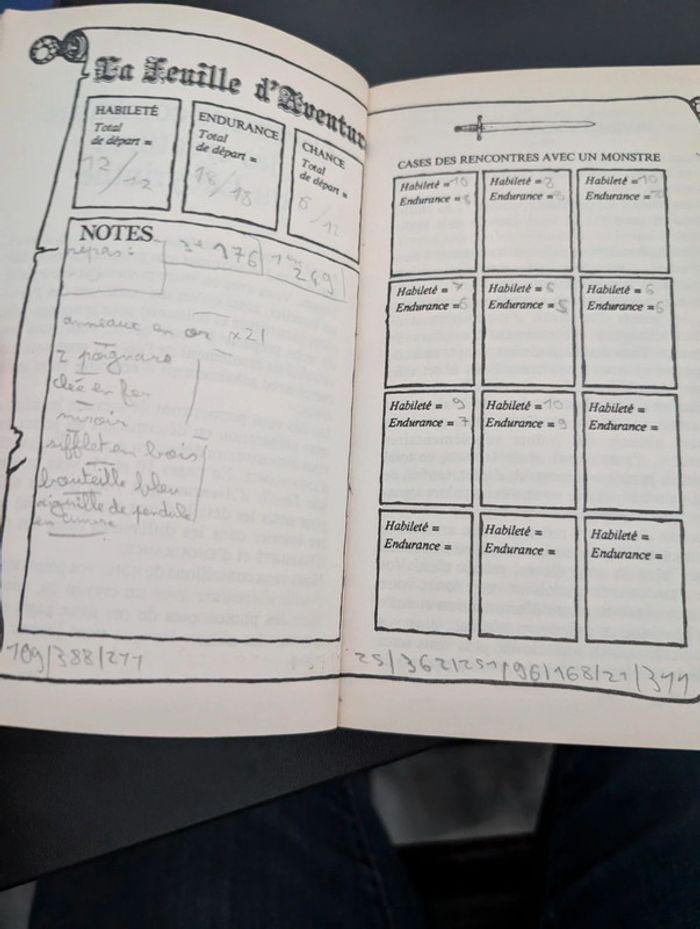 La Feuille d'Aventur
HABILETÉ
Total
de départ =
12/12
ENDURANCE
Total
de départ =
18/18
CHANCE
Total
de départ =
6/12
NOTES
repas:
176
249
anneaux en or x21
2 poignard
clée en fer
miroir
sifflet en bois
bouteille bleu
aiguille de pendule
en
109/388/211
CASES DES RENCONTRES AVEC UN MONSTRE
Habileté = 10
Endurance = 8
Habileté = 8
Endurance =
Habileté = 10
Endurance =
Habileté = 7
Endurance = 6
Habileté = 6
Endurance = 5
Habileté = 6
Endurance = 6
Habileté = 9
Endurance = 7
Habileté = 10
Endurance = 9
Habileté =
Endurance =
Habileté =
Endurance =
Habileté =
Endurance =
Habileté =
Endurance =
25/362/251/96/168/21/311